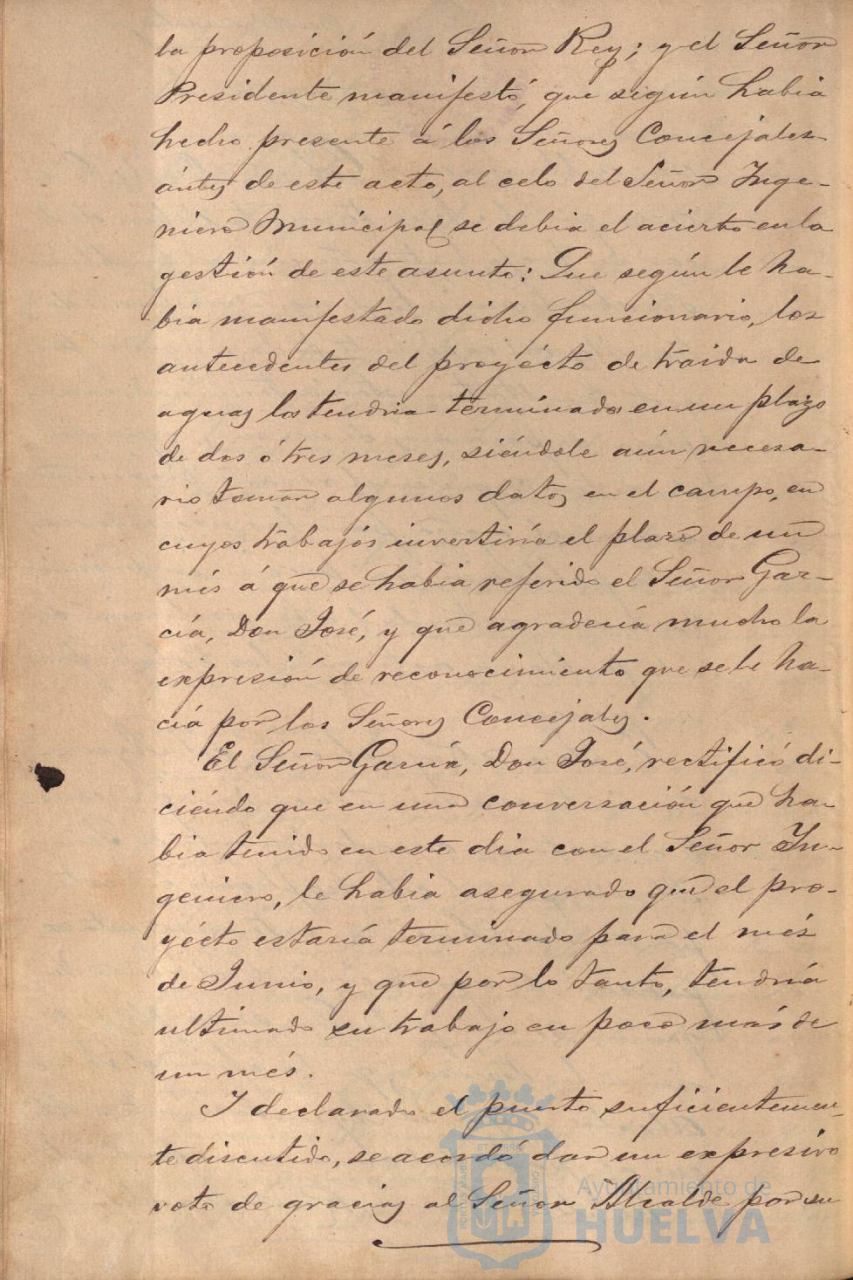 la proposición del Señor Rey; y el Señor
Presidente manifestó, que según habia
hecho presente á los Señores Concejales
ántes de este acto, al celo del Señor Inge-
niero Municipal se debia el acierto en la
gestión de este asunto: Que según le ha-
bia manifestado dicho funcionario, los
antecedentes del proyécto de traida de
aguas los tendria terminados en un plazo
de dos ó tres meses, siéndole aún necesa-
rio tomar algunos datos en el campo, en
cuyos trabajos invertiría el plazo de un
més á que se habia referido el Señor Gar-
cía, Don José, y que agradecía mucho la
expresión de reconocimiento que se le ha-
cía por los Señores Concejales.
El Señor García, Don José, rectificó di-
ciéndo que en una conversación que ha-
bia tenido en este dia con el Señor In-
geniero, le habia asegurado que el pro-
yécto estaría terminado para el més
de Junio, y que por lo tanto, tendría
ultimado su trabajo en poco más de
un més.
I declarado el punto suficientemen-
te discutido, se acordó dar un expresivo
voto de gracias al Señor Alcalde por su
Ayuntamiento de
HUELVA